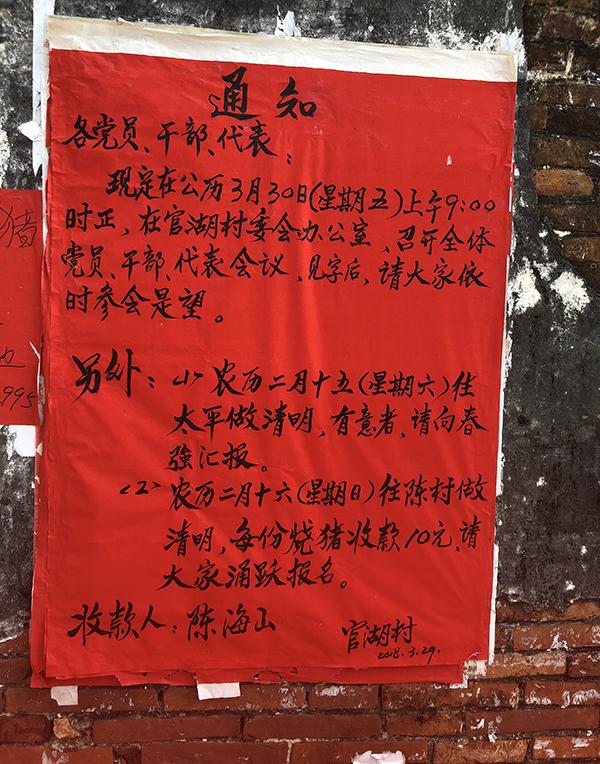 通知
各党员、干部、代表:
现定在公历3月30日(星期五)上午9:00
时正,在官湖村委会办公室、召开全体
党员、干部、代表会议、见字后、请大家依
时参会是望。
另外:(1)农历二月十五(星期六)往
太平做清明,有意者,请向春
强汇报。
(2)农历二月十六(星期日)往陈村做
清明,每份烧猪收款10元,请
大家涌跃报名。
收款人:陈海山
官湖村
2018.3.29.
猪
995